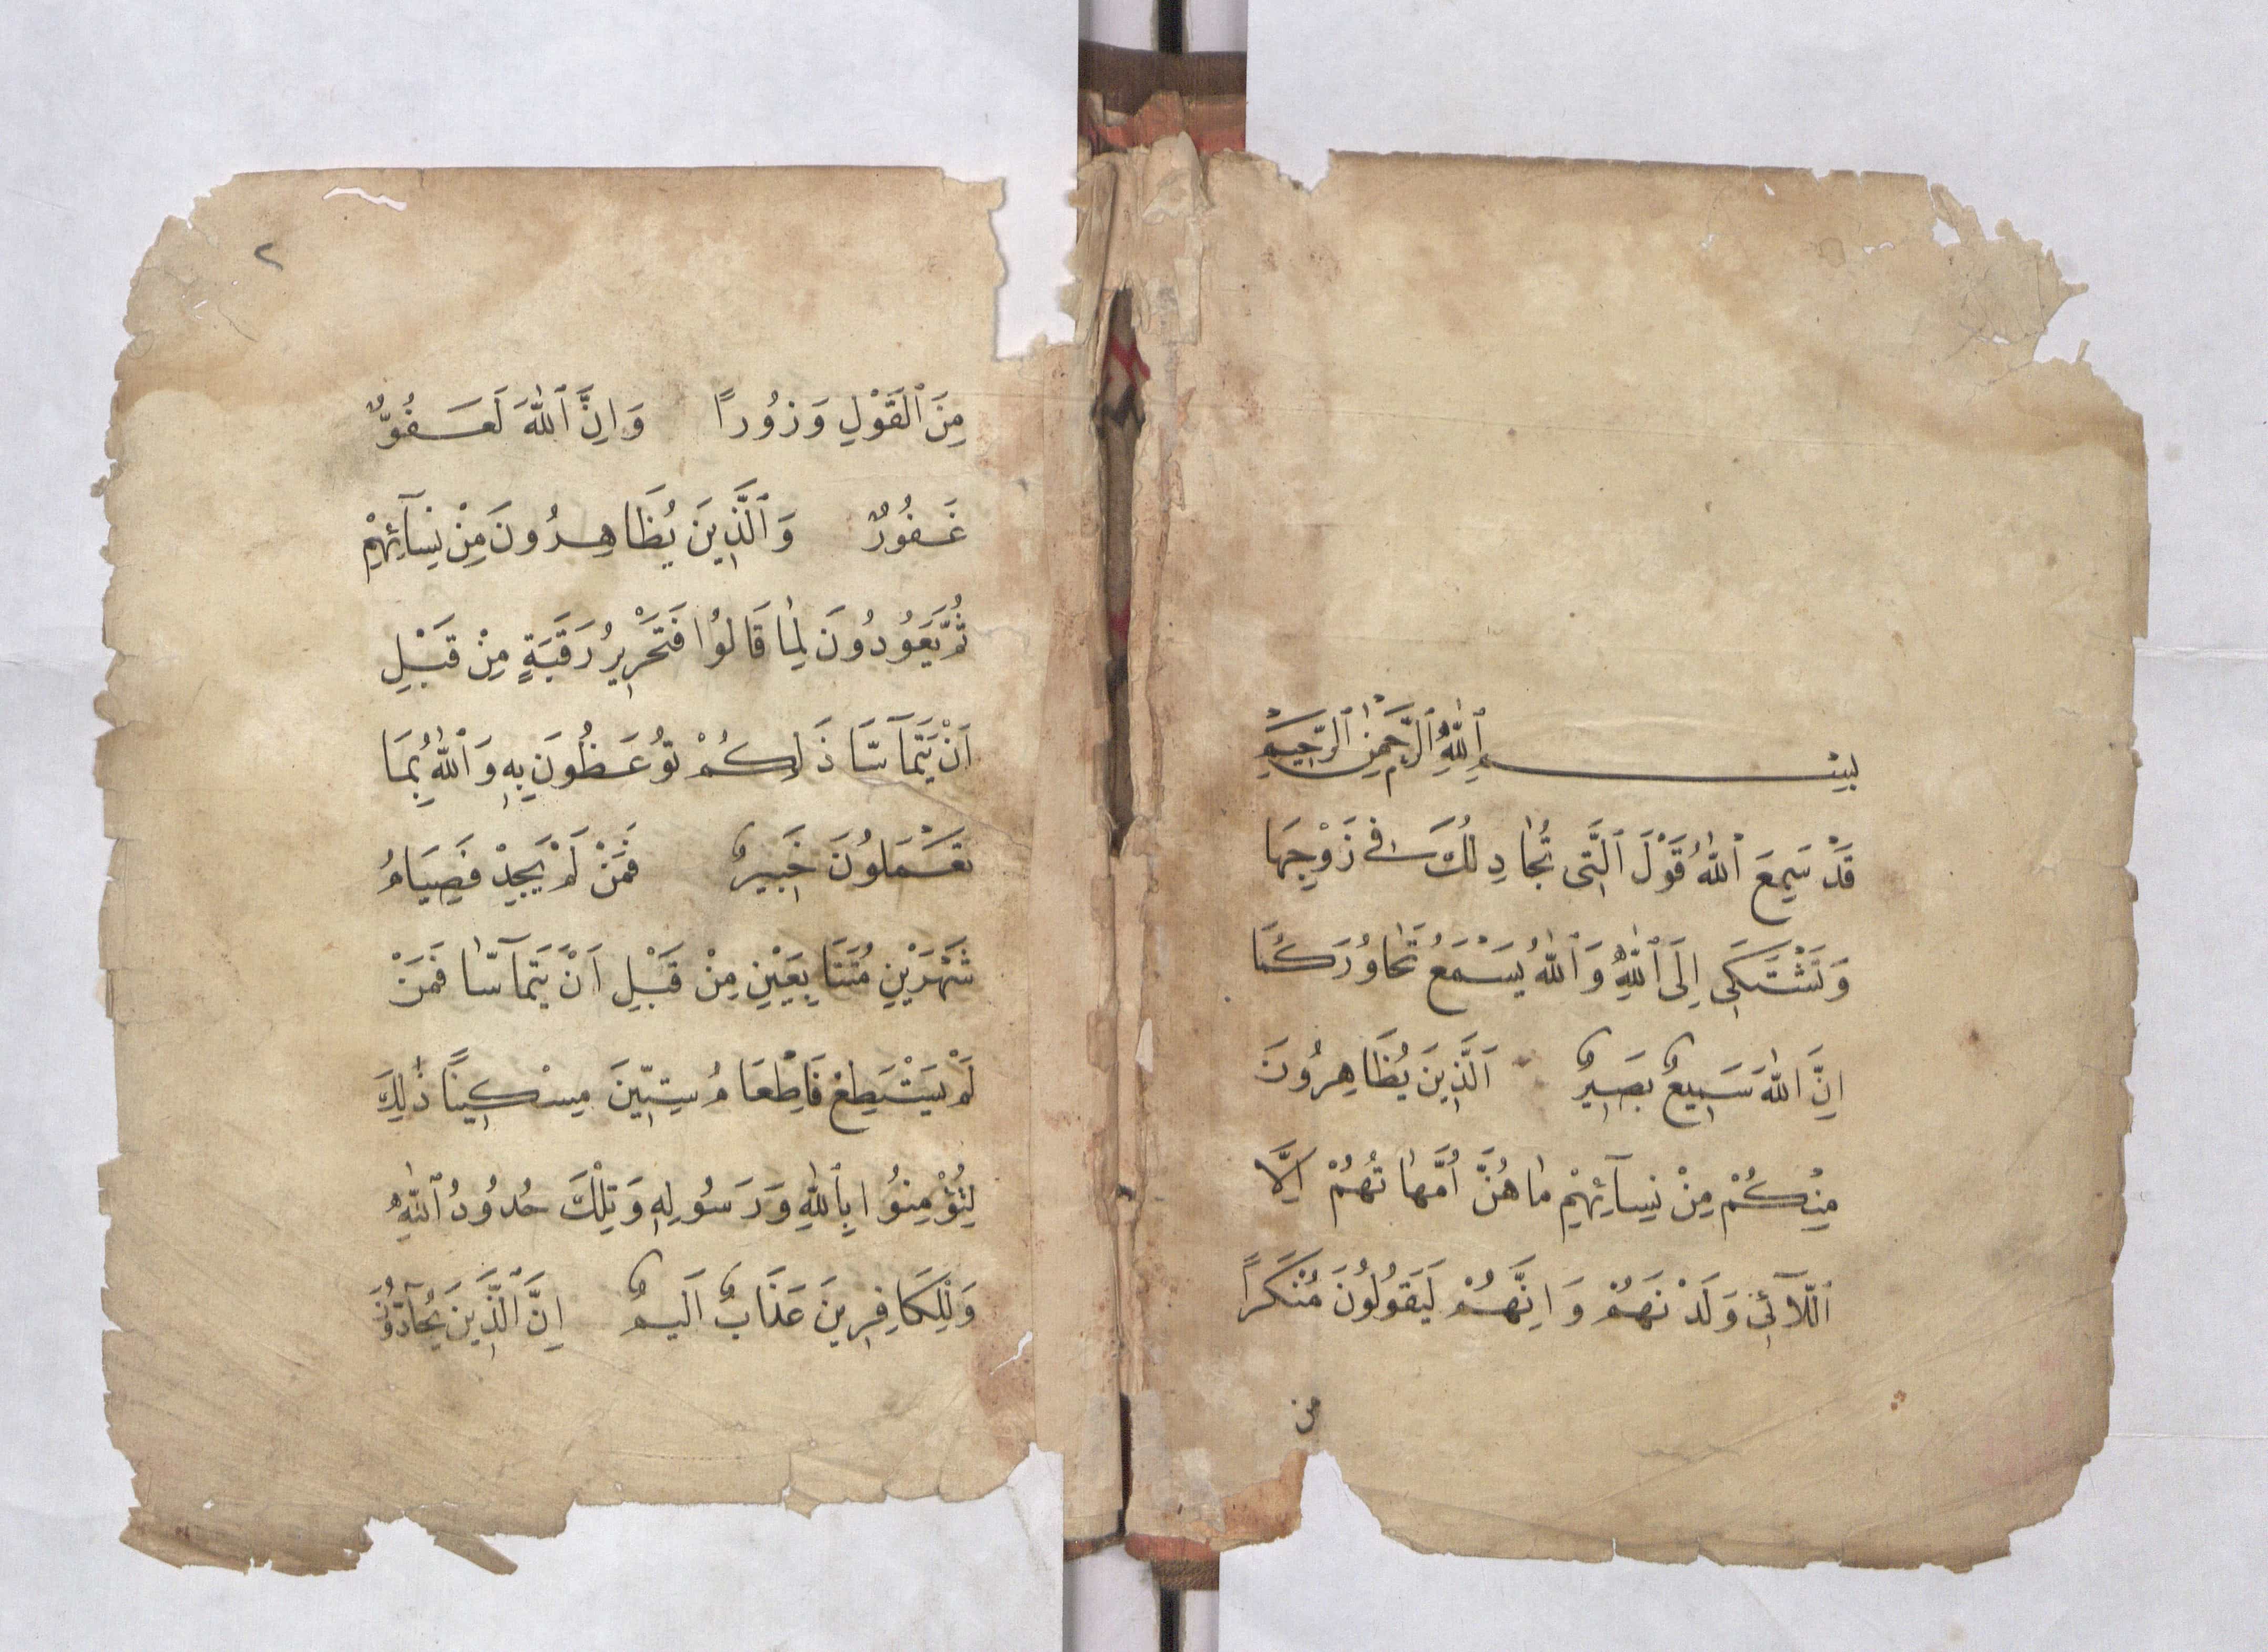 بِسْمِ ٱللّٰهِ ٱلرَّحْمٰنِ ٱلرَّحِيمِ
قَدْ سَمِعَ ٱللّٰهُ قَوْلَ ٱلَّتِى تُجَادِلُكَ فِى زَوْجِهَا
وَتَشْتَكِى اِلَى ٱللّٰهِ وَٱللّٰهُ يَسْمَعُ تَحَاوُرَكُمَا
اِنَّ ٱللّٰهَ سَمِيعٌ بَصِيرٌ اَلَّذِينَ يُظَاهِرُونَ
مِنْكُمْ مِنْ نِسَآئِهِمْ مَا هُنَّ اُمَّهَاتُهُمْ اِلَّا
ٱللَّآئِى وَلَدْنَهُمْ وَاِنَّهُمْ لَيَقُولُونَ مُنْكَرًا
من
٢
مِنَ ٱلْقَوْلِ وَزُورًا وَاِنَّ ٱللّٰهَ لَعَفُوٌّ
غَفُورٌ وَٱلَّذِينَ يُظَاهِرُونَ مِنْ نِسَآئِهِمْ
ثُمَّ يَعُودُونَ لِمَا قَالُوا فَتَحْرِيرُ رَقَبَةٍ مِنْ قَبْلِ
اَنْ يَتَمَآسَّا ذَلِكُمْ تُوعَظُونَ بِهِ وَٱللّٰهُ بِمَا
تَعْمَلُونَ خَبِيرٌ فَمَنْ لَمْ يَجِدْ فَصِيَامُ
شَهْرَيْنِ مُتَتَابِعَيْنِ مِنْ قَبْلِ اَنْ يَتَمَآسَّا فَمَنْ
لَمْ يَسْتَطِعْ فَاِطْعَامُ سِتِّينَ مِسْكِينًا ذٰلِكَ
لِتُؤْمِنُوا بِٱللّٰهِ وَرَسُولِهِ وَتِلْكَ حُدُودُ ٱللّٰهِ
وَلِلْكَافِرِينَ عَذَابٌ اَلِيمٌ اِنَّ ٱلَّذِينَ يُحَآدُّونَ